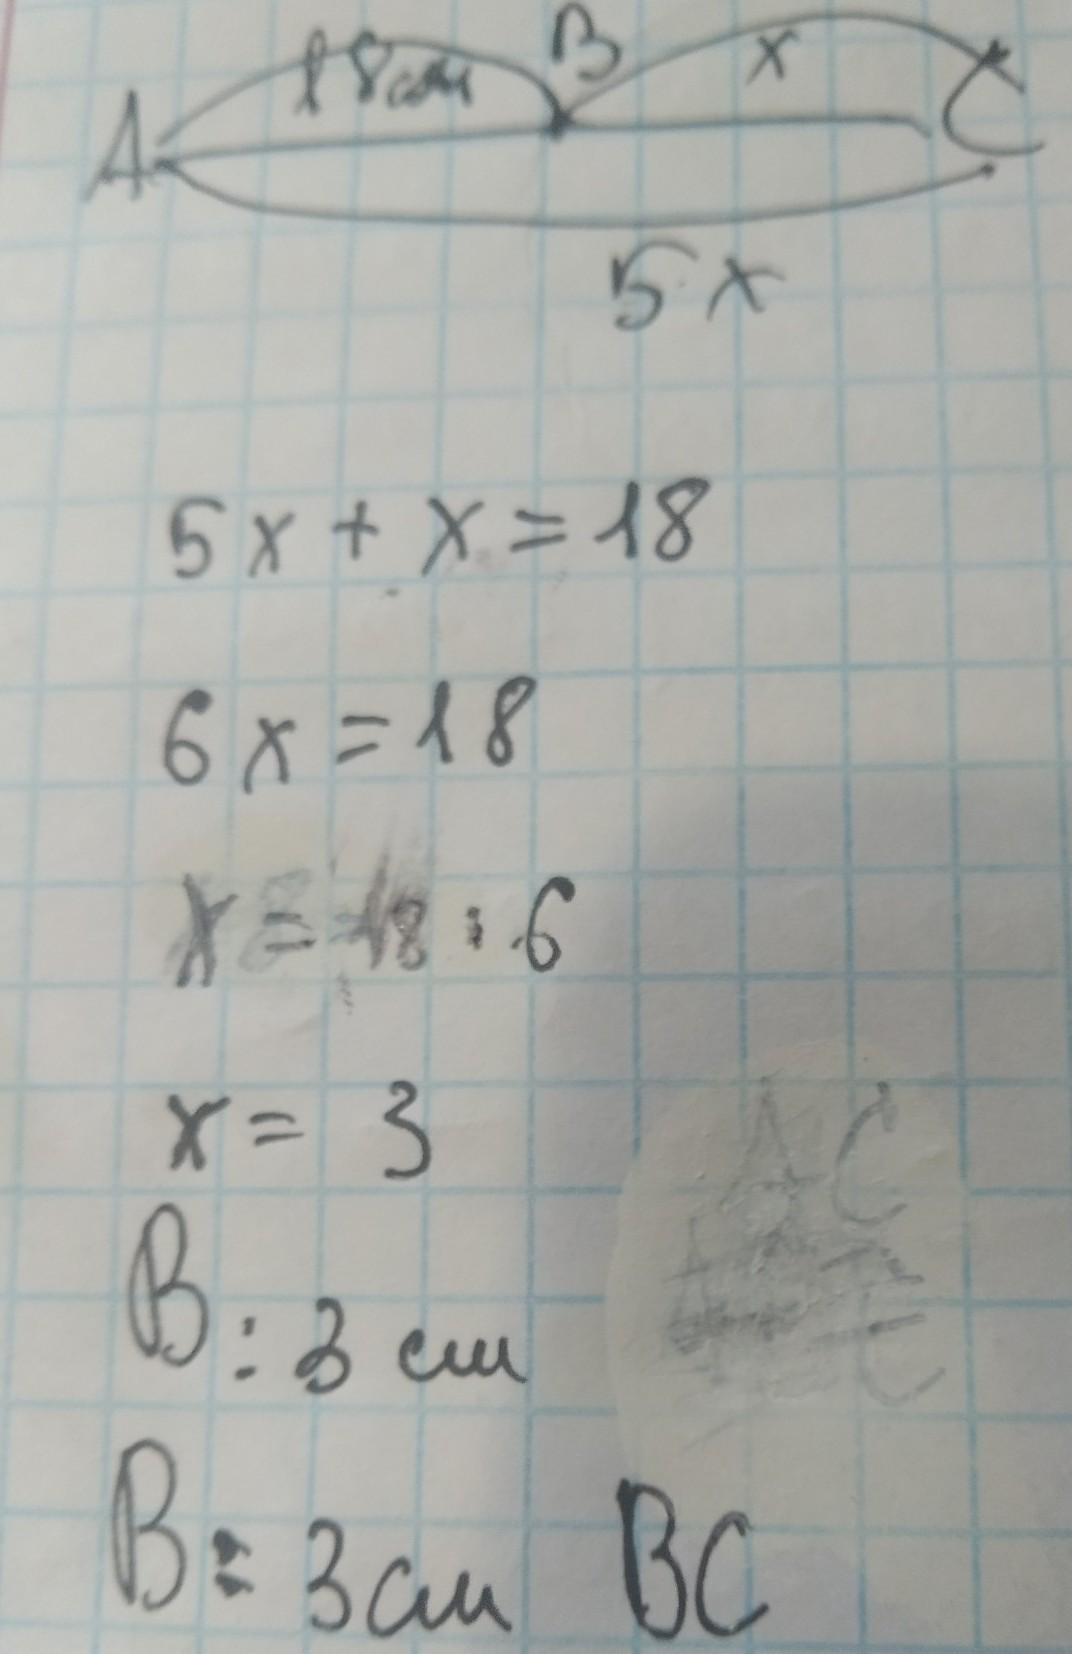 18см B x
A C
5x
5x + x = 18
6x = 18
x = 18 : 6
x = 3
A C
B : 3 см
B = 3 см BC